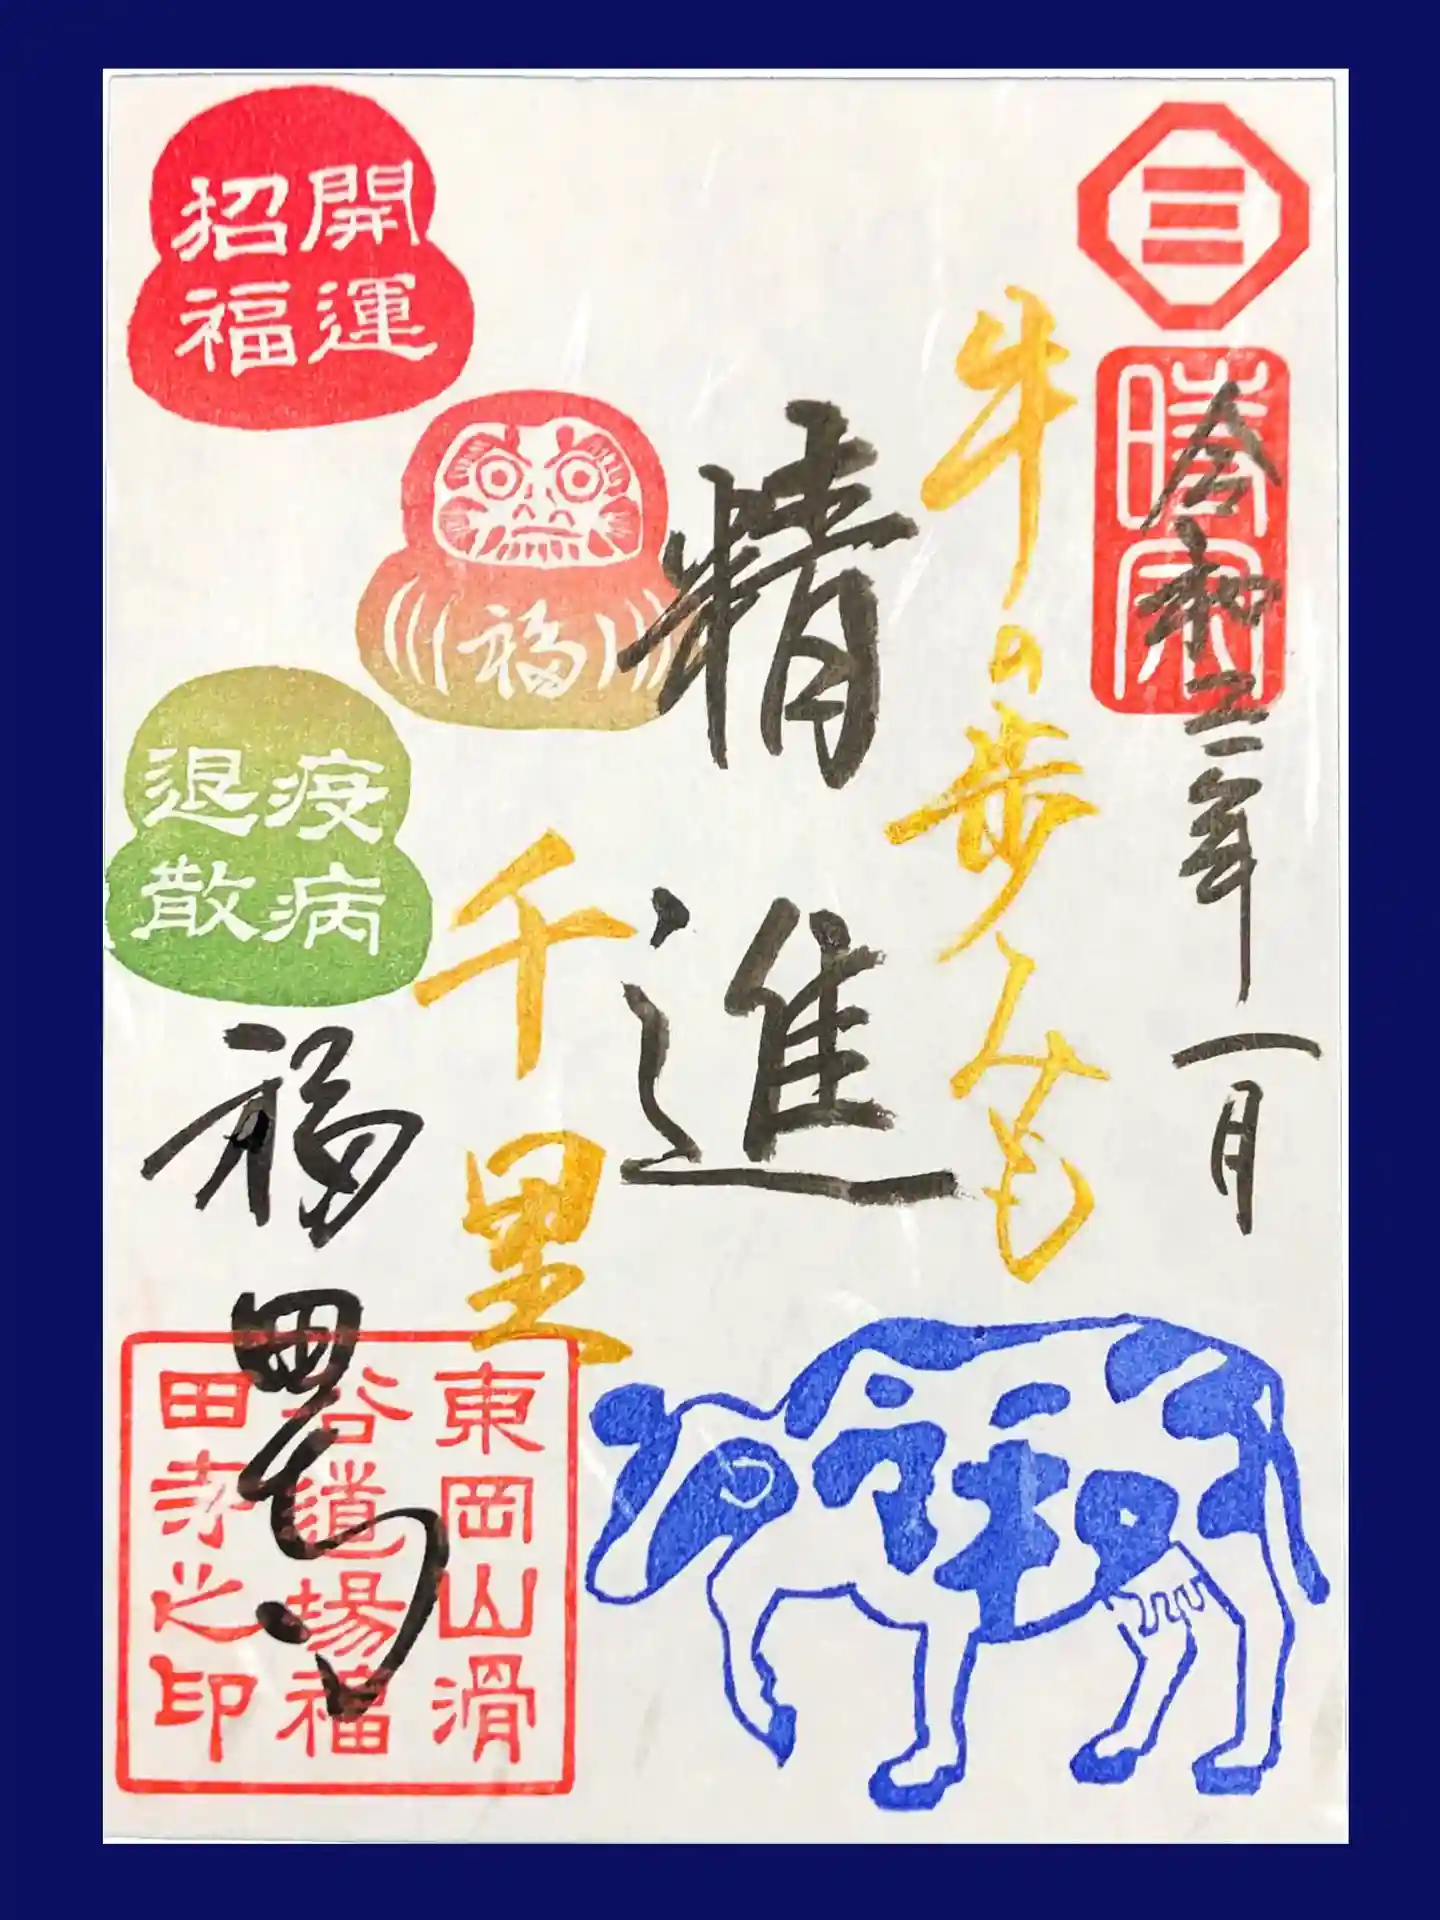 三
時宗
令和三年一月
牛の歩みも
精進
千里
開運
招福
福
疫病
退散
福田寺
東岡山滑
谷道場福
田寺之印
令和